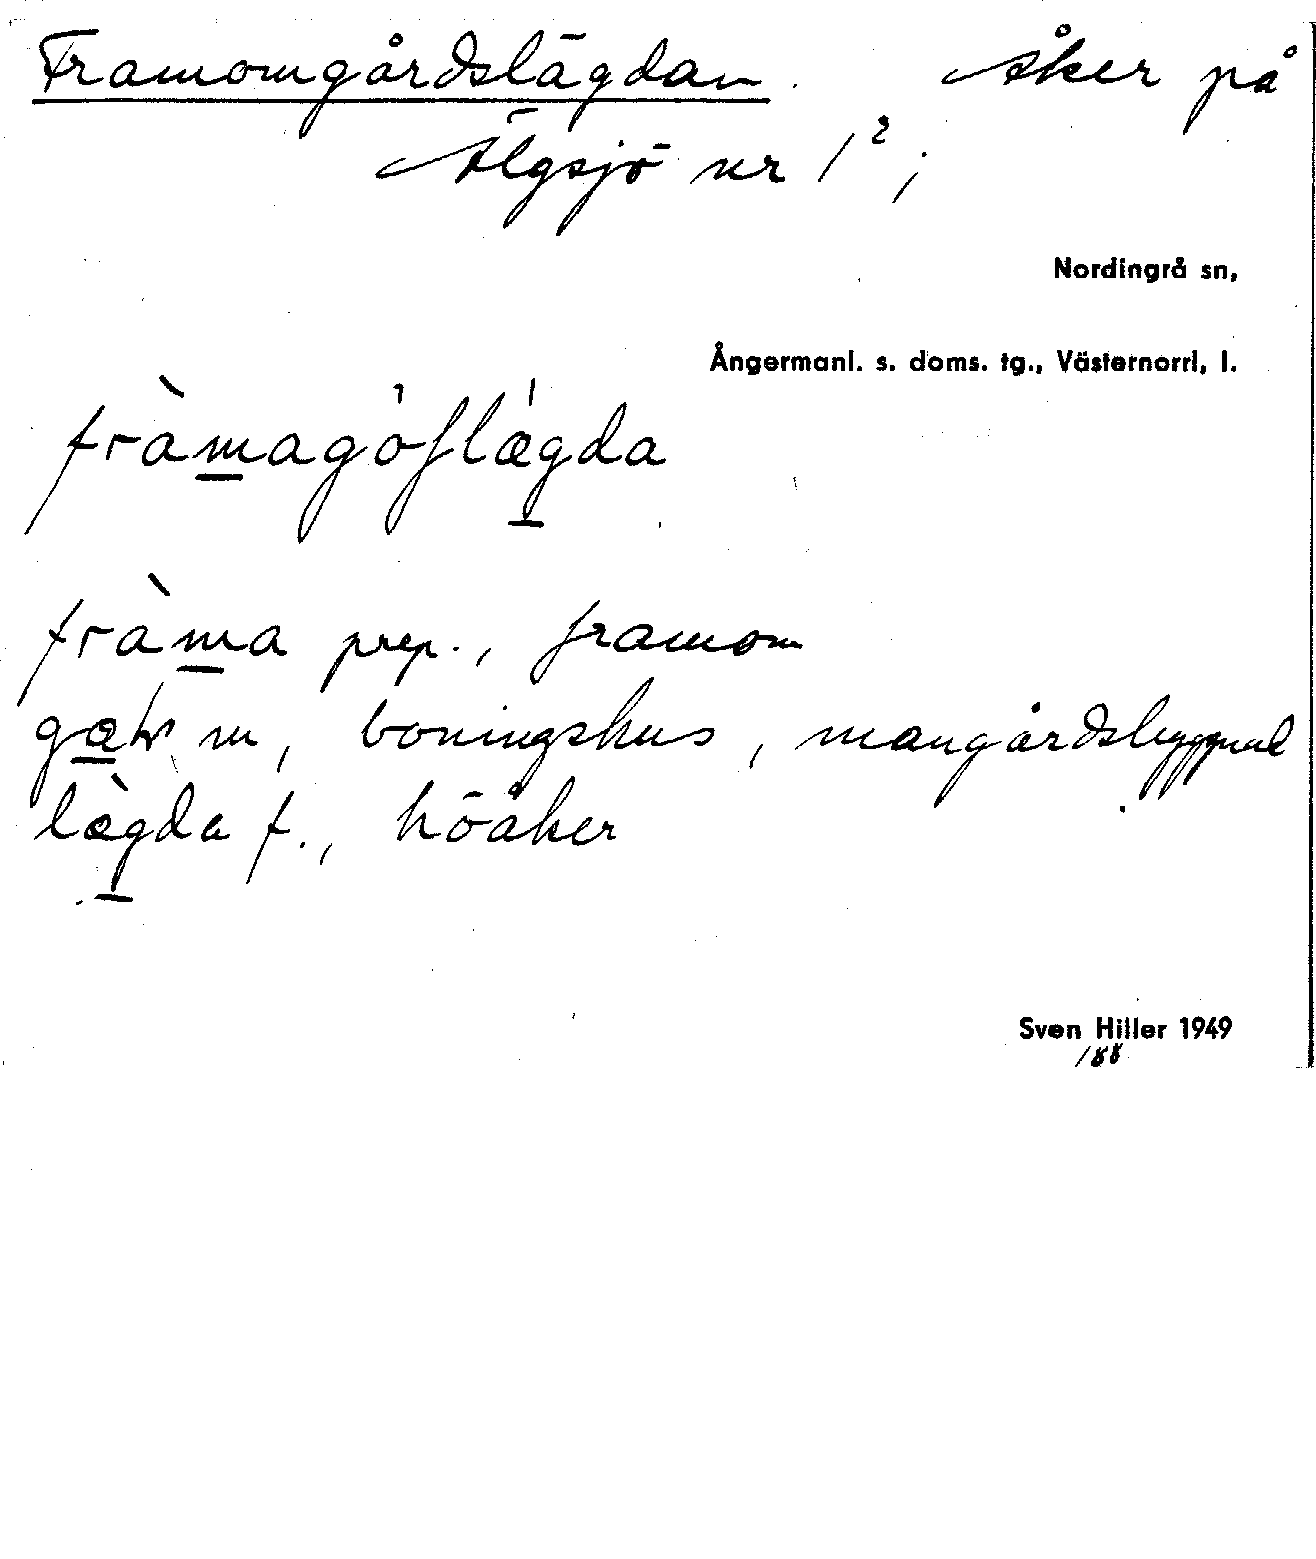 Framomgårdslägdan. Åker på
Älgsjö nr 1²;
Nordingrå sn,
Ångermanl. s. doms. tg., Västernorrl, l.
fràmagóflægda
fràma prep., framom
m, boningshus, mangårdsbyggnad
lægda f., höåker
Sven Hiller 1949
188